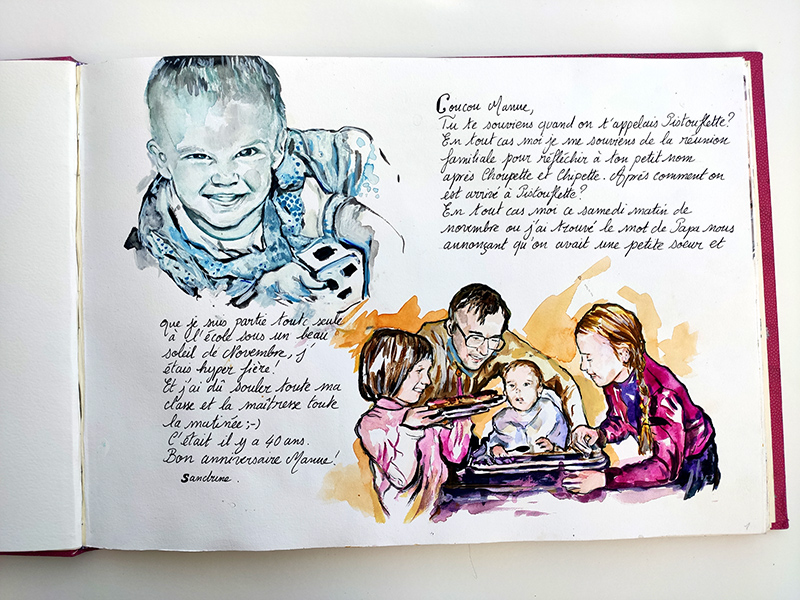 Coucou Manue,
Tu te souviens quand on t'appelais Pistouflette?
En tout cas moi je me souviens de la réunion
familiale pour réfléchir à ton petit nom
après Choupette et Chipette. Après comment on
est arrivé à Pistouflette?
En tout cas moi ce samedi matin de
novembre ou j'ai trouvé le mot de Papa nous
annonçant qu'on avait une petite soeur et
que je suis partie toute seule
à l'école sous un beau
soleil de Novembre, j'
étais hyper fière!
Et j'ai dû souler toute ma
classe et la maîtresse toute
la matinée ;-)
C'était il y a 40 ans.
Bon anniversaire Manue!
Sandrine.